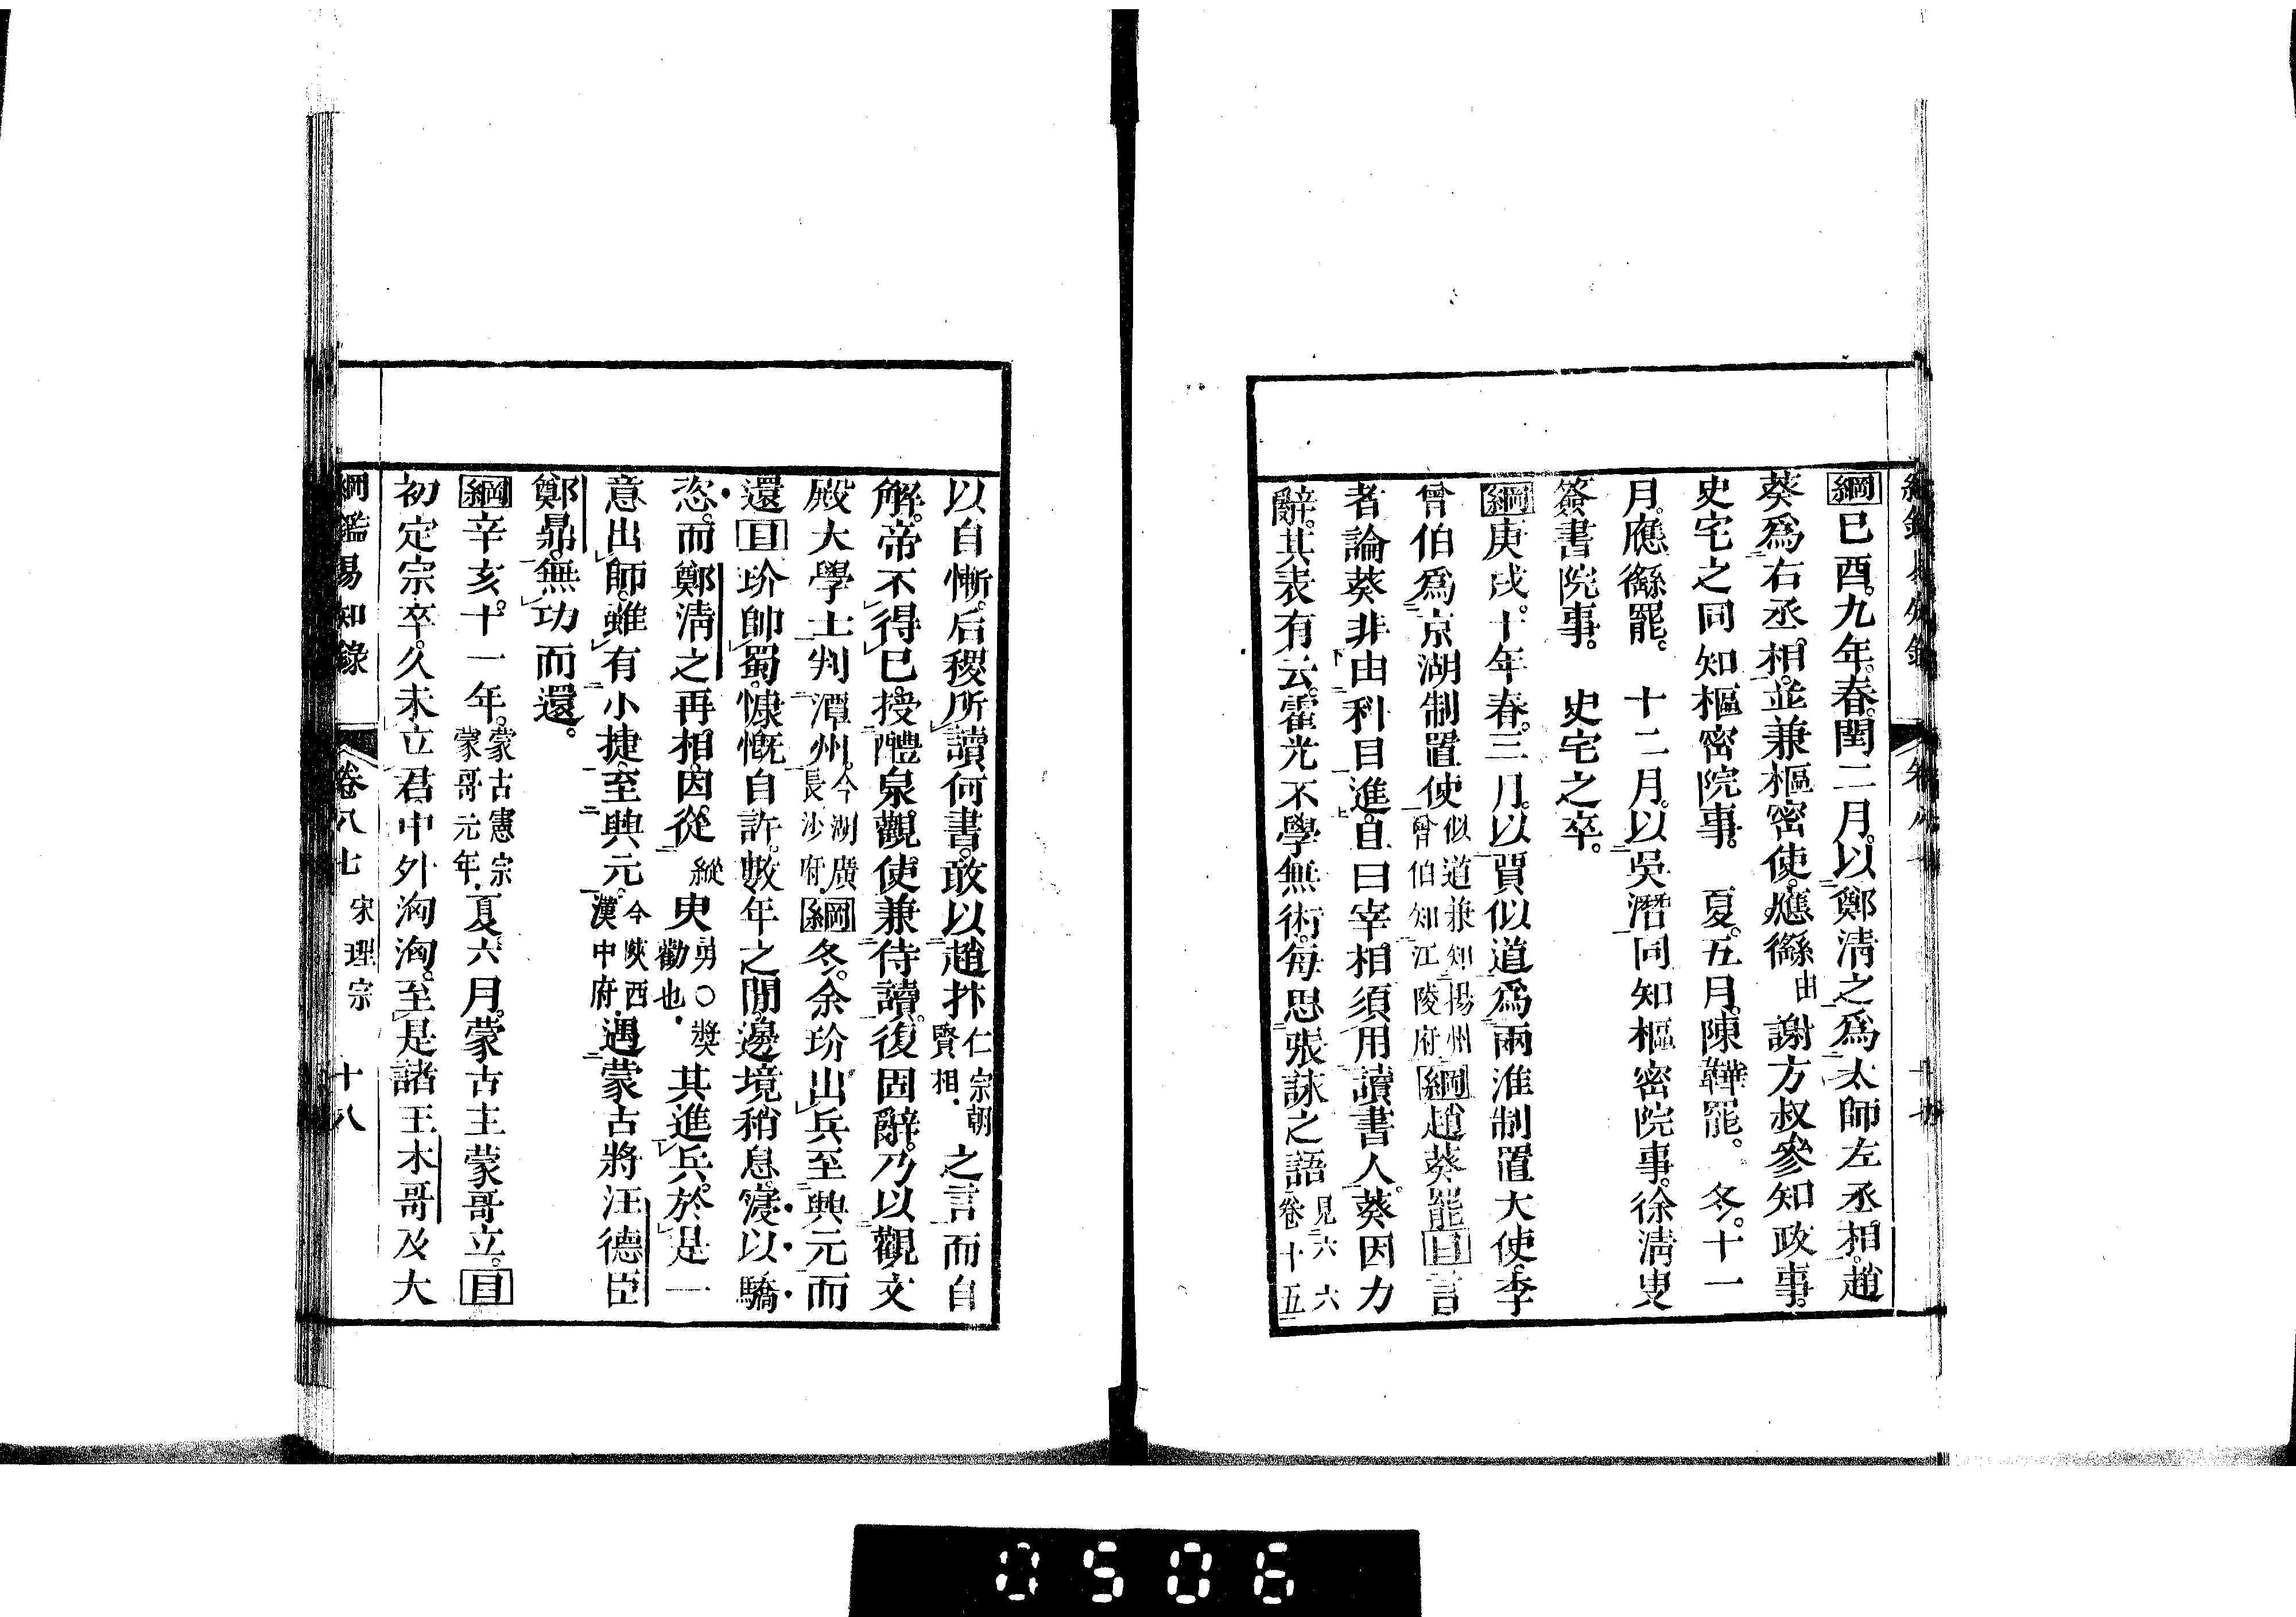 綱己酉。九年。春。閏二月。以鄭淸之爲太師左丞相。趙
葵爲右丞相。並兼樞密使。應𦇲由謝方叔參知政事。
史宅之同知樞密院事。 夏。五月。陳韡罷。 冬。十一
月。應𦇲罷。 十二月。以吳潛同知樞密院事。徐淸叟
簽書院事。 史宅之卒。
綱庚戌。十年。春。三月。以賈似道爲兩淮制置大使。李
曾伯爲京湖制置使似道兼知揚州曾伯知江陵府綱趙葵罷目言
者論葵非由科目進。且曰宰相須用讀書人。葵因力
辭。其表有云。霍光不學無術。每思張詠之語見六六卷十五
以自慚。后稷所讀何書。敢以趙抃仁宗朝賢相。之言而自
解。帝不得已。授醴泉觀使兼侍讀。復固辭。乃以觀文
殿大學士判潭州。今湖廣長沙府。綱冬。余玠出兵至興元而
還目玠帥蜀。慷慨自許。數年之閒。邊境稍息。寖以驕
恣。而鄭淸之再相。因從縱臾勇○獎勸也。其進兵。於是一
意出師。雖有小捷。至興元。今陝西漢中府。遇蒙古將汪德臣
鄭鼎。無功而還。
綱辛亥。十一年。蒙古憲宗蒙哥元年。夏。六月。蒙古主蒙哥立。目
初定宗卒。久未立君。中外洶洶。至是諸王木哥及大
綱鑑易知錄 卷八七 宋理宗 十八
0506